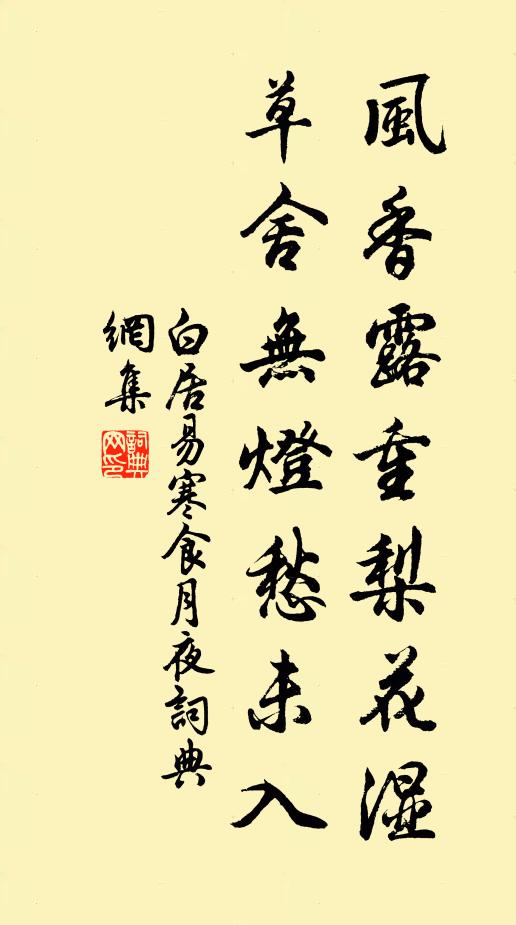 風香露重梨花湿
草舍無燈愁未入
白居易寒食月夜詞典
網集
詞典网印